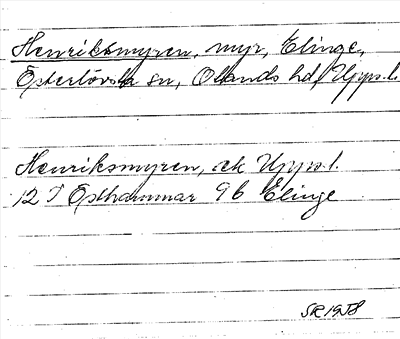 Henriksmyren, myr, Elinge,
Österlövsta sn, Olands hd, Upps.l.
Henriksmyren, ek Upps.l.
12 I Östhammar 9b Elinge
SR 1958